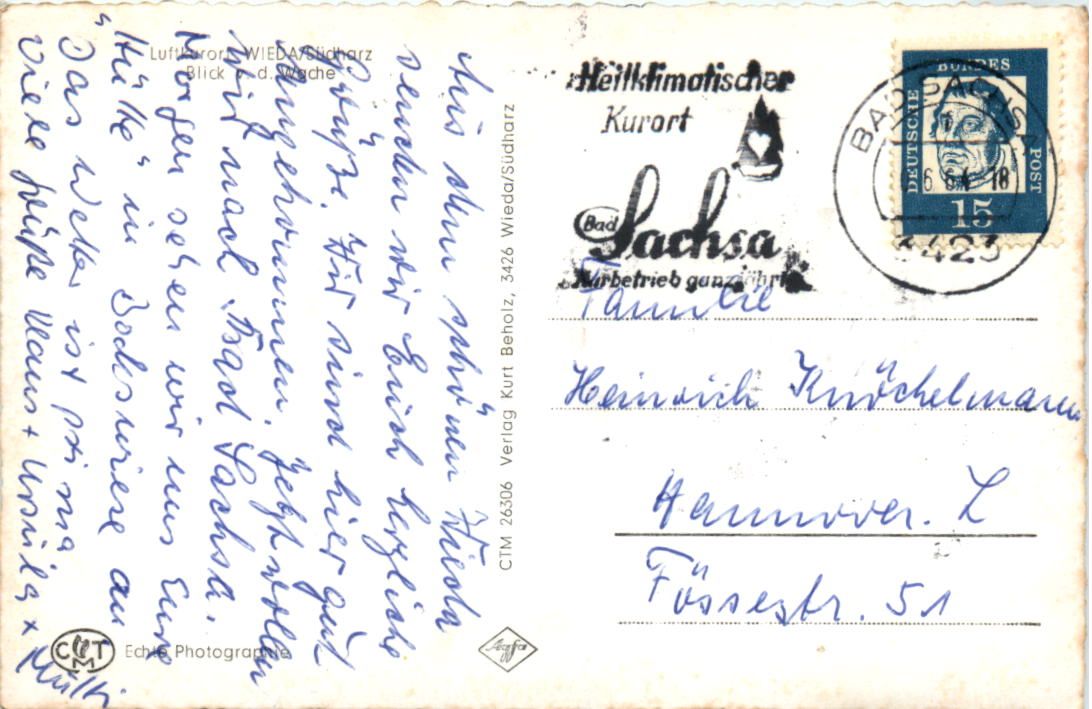 Luftkurort WIEDA/Südharz
Blick v. d. Wache
Aus dem schönen Wieda
senden wir Euch herzliche
Grüße. Wir sind hier gut
angekommen. Jetzt wollen
wir nach Bad Sachsa.
Morgen sehen wir uns Eure
"Hütte" in Bockswiese an
Das Wetter ist prima
Viele Grüße Klaus + Ursula +
CMT
Echte Photographie
Agfa
CTM 26306 Verlag Kurt Beholz, 3426 Wieda/Südharz
Heilklimatischer
Kurort
Bad Sachsa
Kurbetrieb ganzjährig
BAD SACHSA
18
3423
DEUTSCHE BUNDESPOST
15
Familie
Heinrich Knöchelmann
Hannover. L
Fössestr. 51